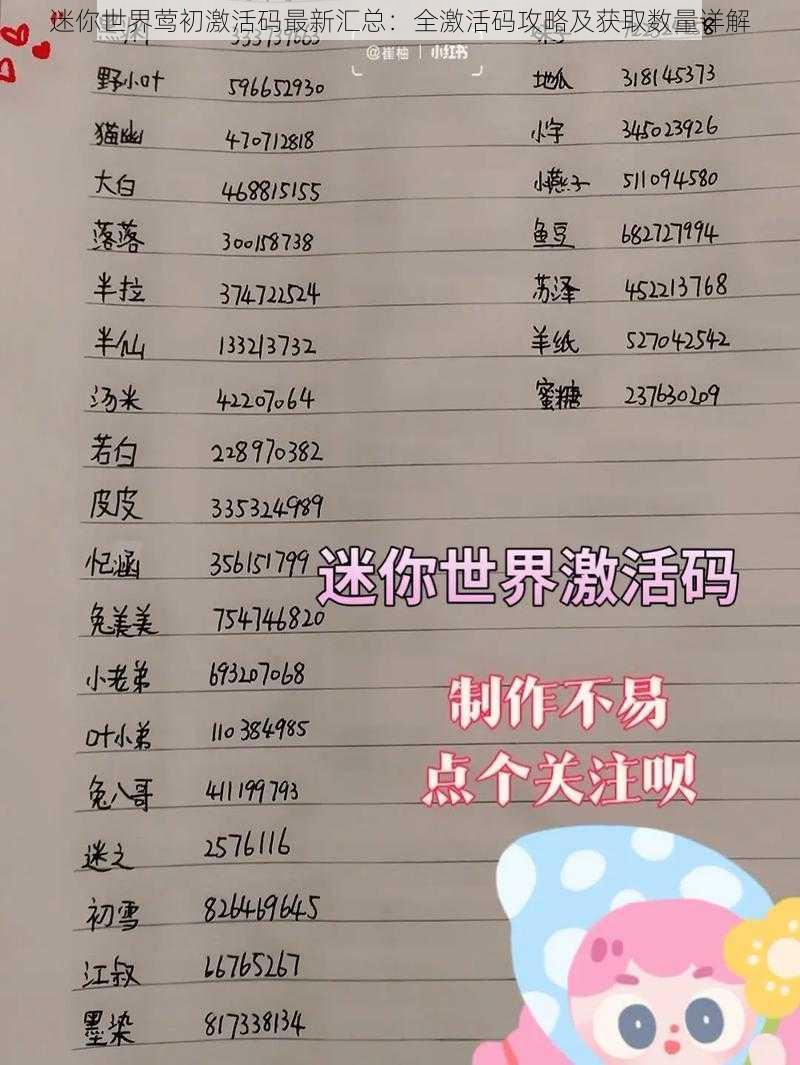 迷你世界莺初激活码最新汇总：全激活码攻略及获取数量详解
@崔柚 | 小红书
野小叶 596652930
猫幽 470712818
大白 468815155
落落 300158738
半拉 374722524
半仙 133213732
汤米 42207064
若白 228970382
皮皮 335324989
忆涵 356151799
兔美美 754746820
小老弟 693207068
叶小弟 110384985
兔八哥 411199793
迷之 2576116
初雪 826469645
江叔 66765267
墨染 817338134
地瓜 318145373
小字 345023926
小燕子 511094580
鱼豆 682727994
苏泽 452213768
羊纸 527042542
蜜糖 237630209
迷你世界激活码
制作不易
点个关注呗